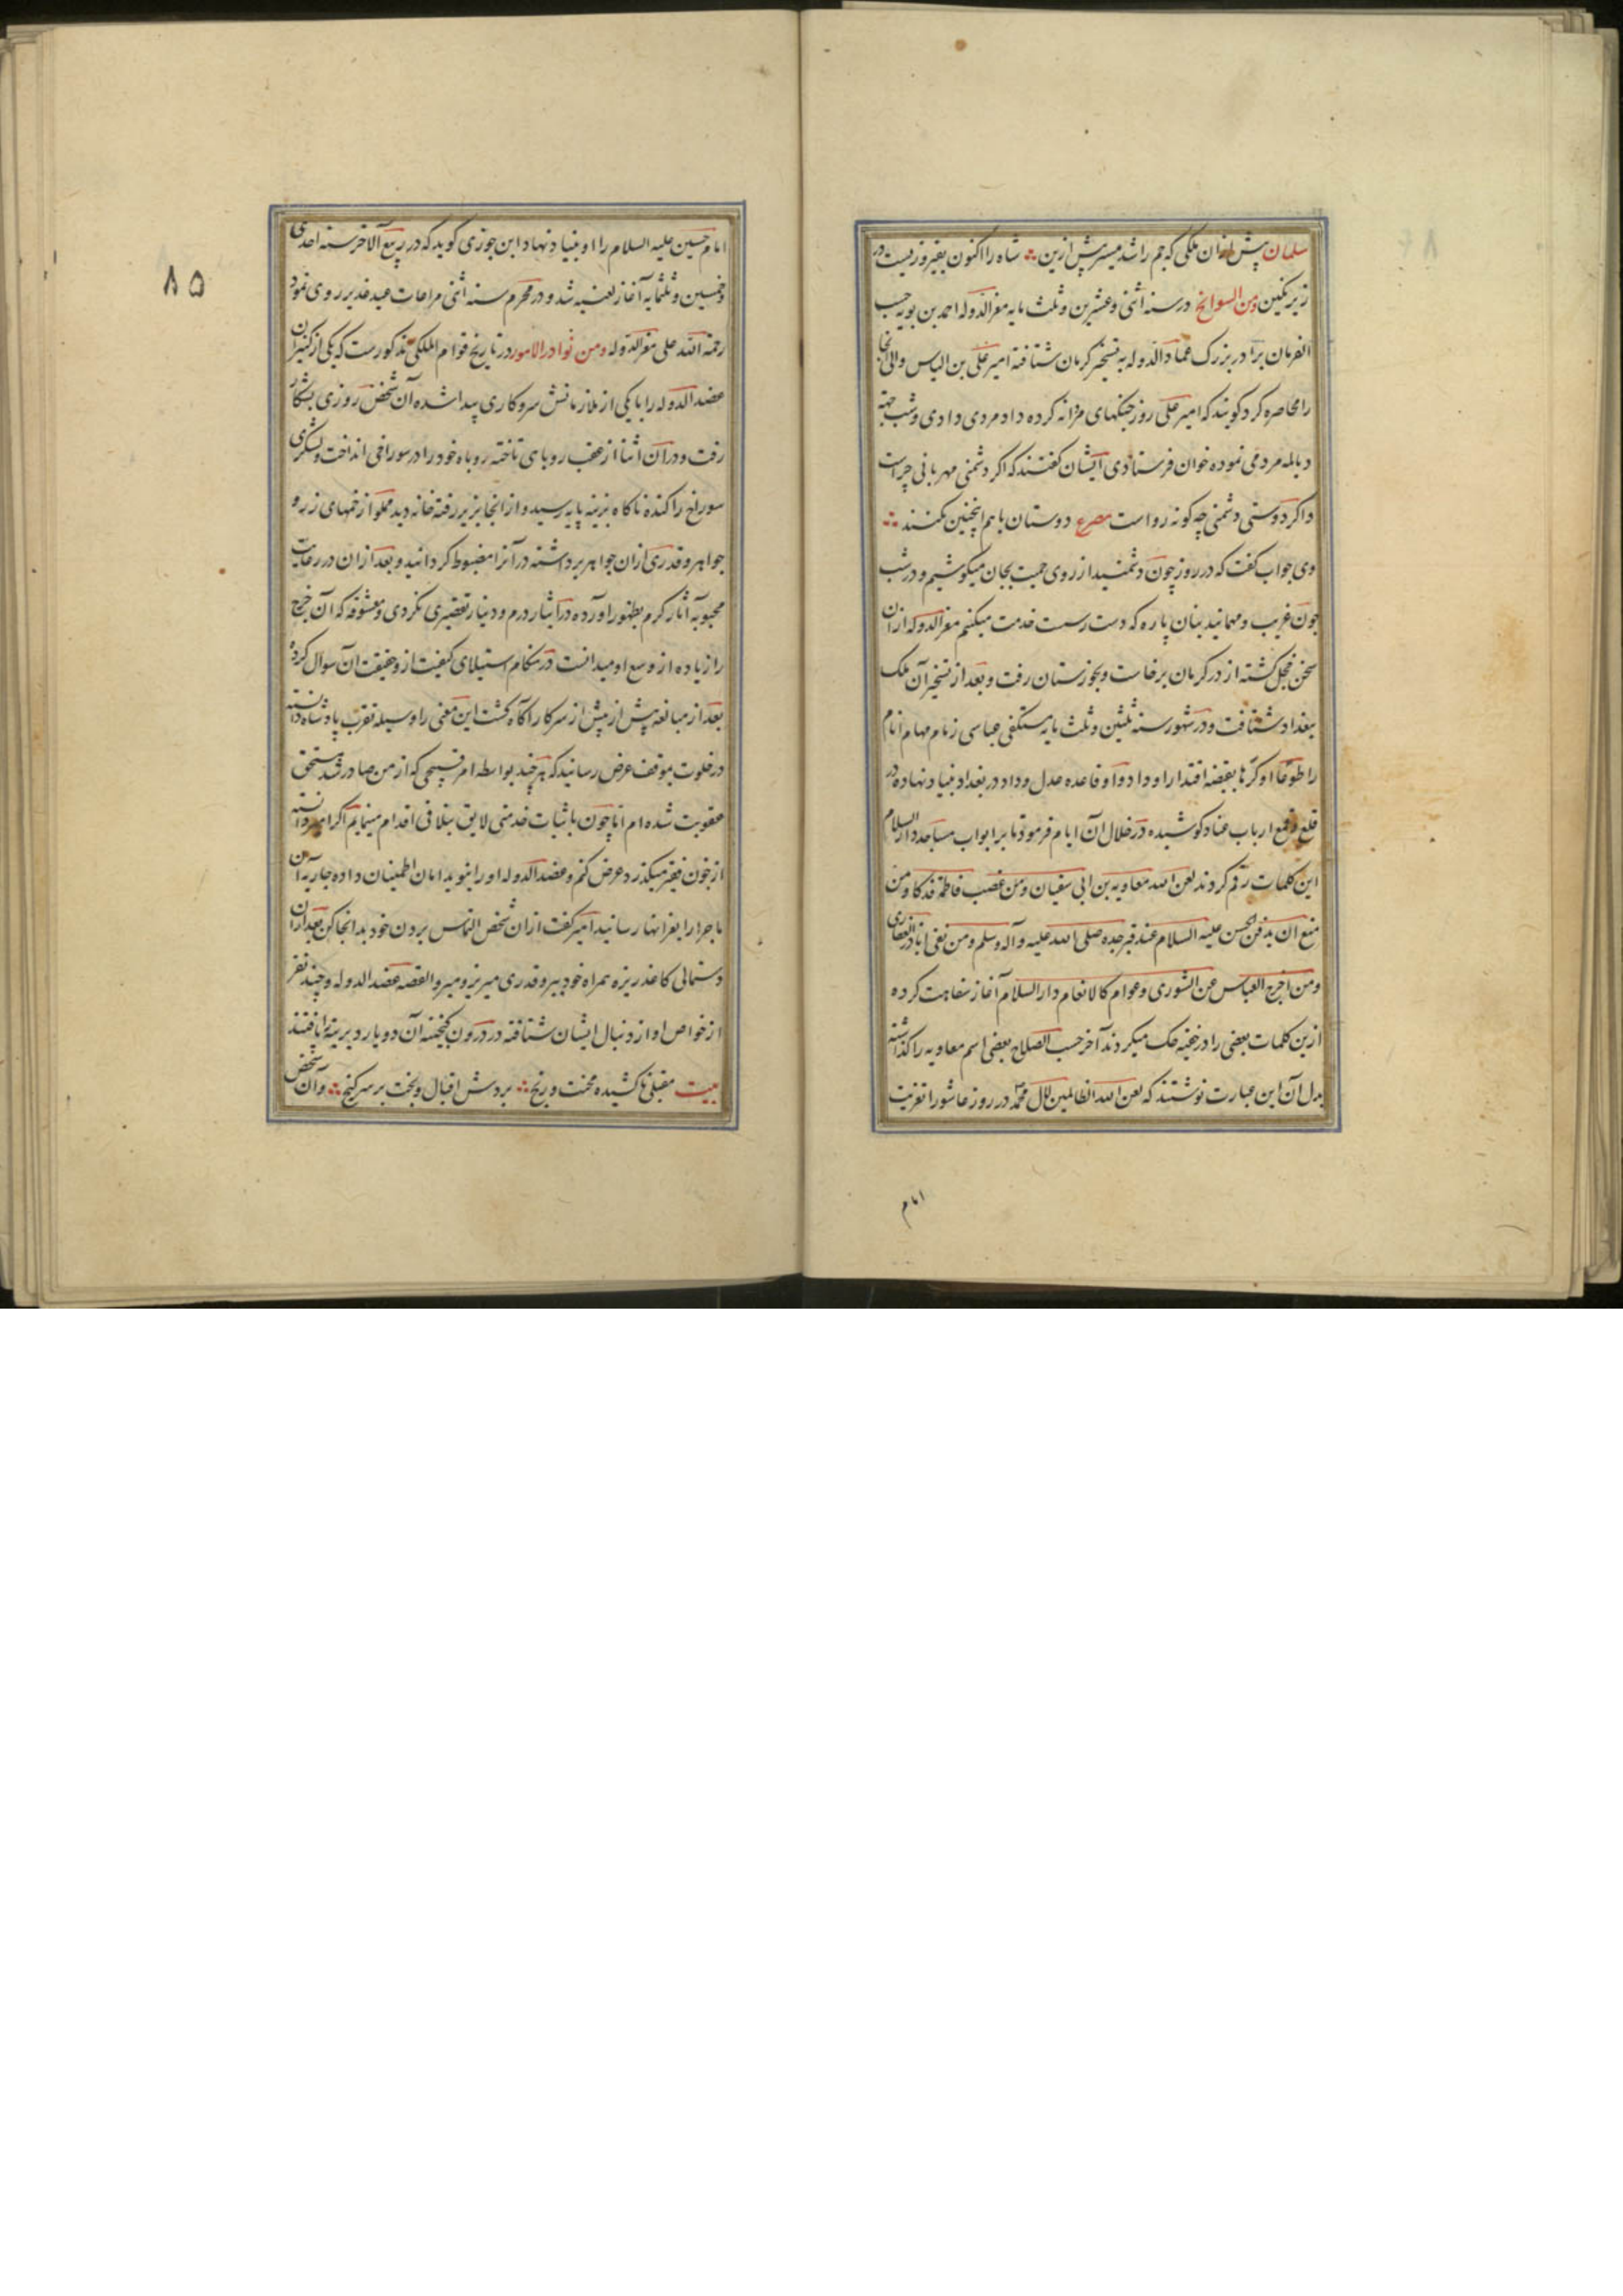 سلمان پیش ازان ملکی که جم را شد میسر پیش ازین شاه را اکنون بفیروزیست در
زیر نکین ومن السوانح در سنه اثنی وعشرین وثلث مایه معزالدوله احمد بن بویه حسب
الفرمان برادر بزرک عمادالدوله به تسخیر کرمان شتافته امیر علی بن الیاس والی آنجا
را محاصره کرد کویند که امیر علی روز جنکهای مردانه کرده داد مردی دادی وشب جهة
دیالمه مردمی نموده خوان فرستادی ایشان کفتند که اکر دشمنی مهربانی چراست
واکر دوستی دشمنی چه کونه رواست مصرع دوستان با هم اینچنین نکنند
وی جواب کفت که در روز چون دشمنید از روی حمیت بجان میکوشیم و در شب
چون غریب ومهمانید بنان پاره که دست رسست خدمت میکنیم معزالدوله ازان
سخن خجل کشته از در کرمان برخاست وبخوزستان رفت وبعد از تسخیر آن ملک
ببغداد شتافت ودر شهور سنه ثلثین وثلث مایه مستکفی عباسی زمام مهام انام
را طوعا او کرها بقبضه اقتدار او داد و او قاعده عدل و داد در بغداد بنیاد نهاده در
قلع وقمع ارباب عناد کوشیده در خلال آن ایام فرمود تا بر ابواب مساجد دارالسلام
این کلمات رقم کردند لعن الله معاویه بن ابی سفیان ومن غصب فاطمة فدکا ومن
منع ان یدفن الحسن علیه السلام عند قبر جده صلی الله علیه وآله وسلم ومن نفی اباذر الغفاری
ومن اخرج العباس عن الشوری وعوام کالانعام دارالسلام آغاز سفاهت کرده
ازین کلمات بعضی را در خفیه حک میکردند آخر حسب الصلاح بعضی اسم معاویه را کذاشته
بدل آن این عبارت نوشتند که لعن الله الظالمین لال محمد در روز عاشورا تعزیت
امام
۸۵
امام حسین علیه السلام را او بنیاد نهاد ابن جوزی کوید که در ربیع الآخر سنه احدی
وخمسین وثلثمایه آغاز لعنیه شد و در محرم سنه اثنی مراعات عید غدیر روی نمود
رحمة الله علی معزالدوله ومن نوادر الامور در تاریخ قوام الملکی مذکورست که یکی از کنیزان
عضدالدوله را با یکی از ملازمانش سروکاری پیدا شده آن شخص روزی بشکار
رفت ودران اثنا از عقب روباهی تاخته روباه خود را در سوراخی انداخت ولشکری
سوراخ را کنده ناکاه بزینه پایه رسید و از انجا بزیر رفته خانه دید مملو از خمهای زر و
جواهر و قدری ازان جواهر برداشته در آنرا مضبوط کردانید و بعد ازان در رعایت
محبوبه آثار کرم بظهور آورده در ایثار درم و دینار تقصیری نکردی ومعشوقه که آن خرج
را زیاده از وسع او میدانست در هنکام استیلای کیفیت ازو حقیقت آن سوال کرده
بعد از مبالغه بیش از پیش از سر کار آکاه کشت این معنی را وسیله تقرب پادشاه دانسته
در خلوت بموقف عرض رسانید که هرچند بواسطه امر قبیحی که از من صادر شد مستحق
عقوبت شده ام اما چون باثبات خدمتی لایق بتلافی اقدام مینمایم اکر امیر دانسته
از خون فقیر میکذرد عرض کنم وعضدالدوله او را بنوید امان اطمینان داده جاریه آن
ماجرا را بعز انها رسانید امیر کفت ازان شخص التماس بردن خود بدانجا کن بعد ازان
دستمالی کاغذ ریزه همراه خود ببر وقدری میریز ومیرو القصه عضدالدوله وچند نفر
از خواص او از دنبال ایشان شتافته در درون کنجینه آن دو یار دیرینه را یافتند
بیت مقبلی ناکشیده محنت و رنج بردش اقبال وبخت بر سر کنج وآن شخص